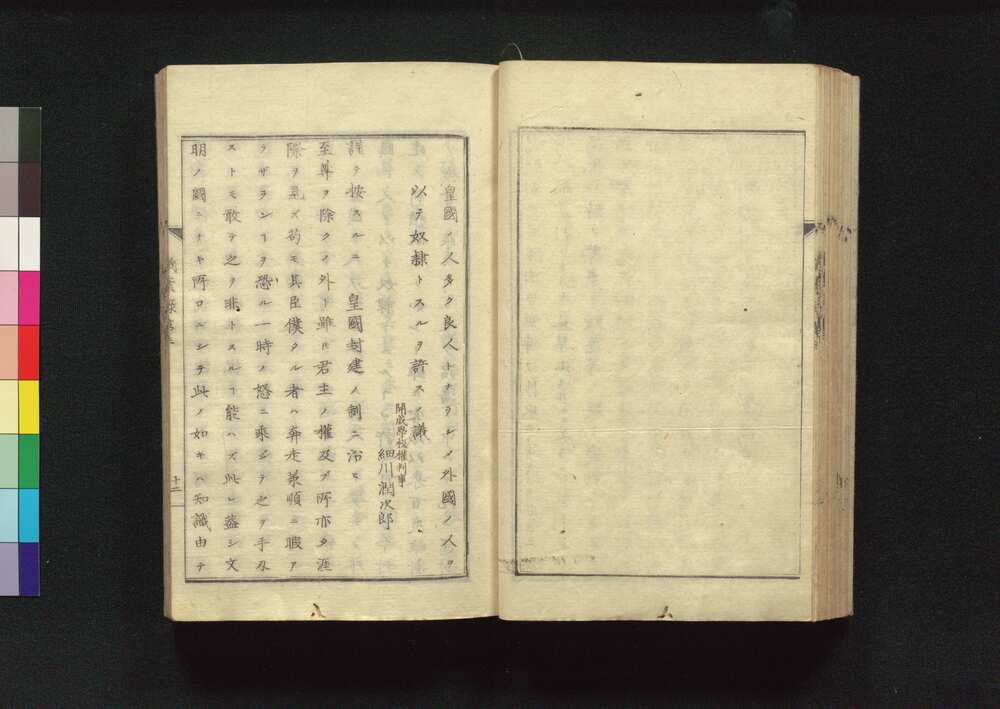 皇國ノ人多ク良人トナラルノ外國ノ人ヲ
以テ奴隷トスルヲ許スノ議
開成學校權判事
細川潤次郎
謹テ按スルニ 皇國封建ノ制ニ沿ヒ
至尊ヲ除クノ外ト雖𪜈君主ノ權及ブ所亦タ涯
際ヲ見ズ苟モ其臣僕タル者ハ奔走承順ニ暇ア
ラザランヿヲ恐ル一時ノ怒ニ乘シテ之ヲ手刃
ストモ敢テ之ヲ非トスルヿ能ハズ此レ蓋シ文
明ノ國ニナキ所ロニシテ此ノ如キハ知識由テ
十二